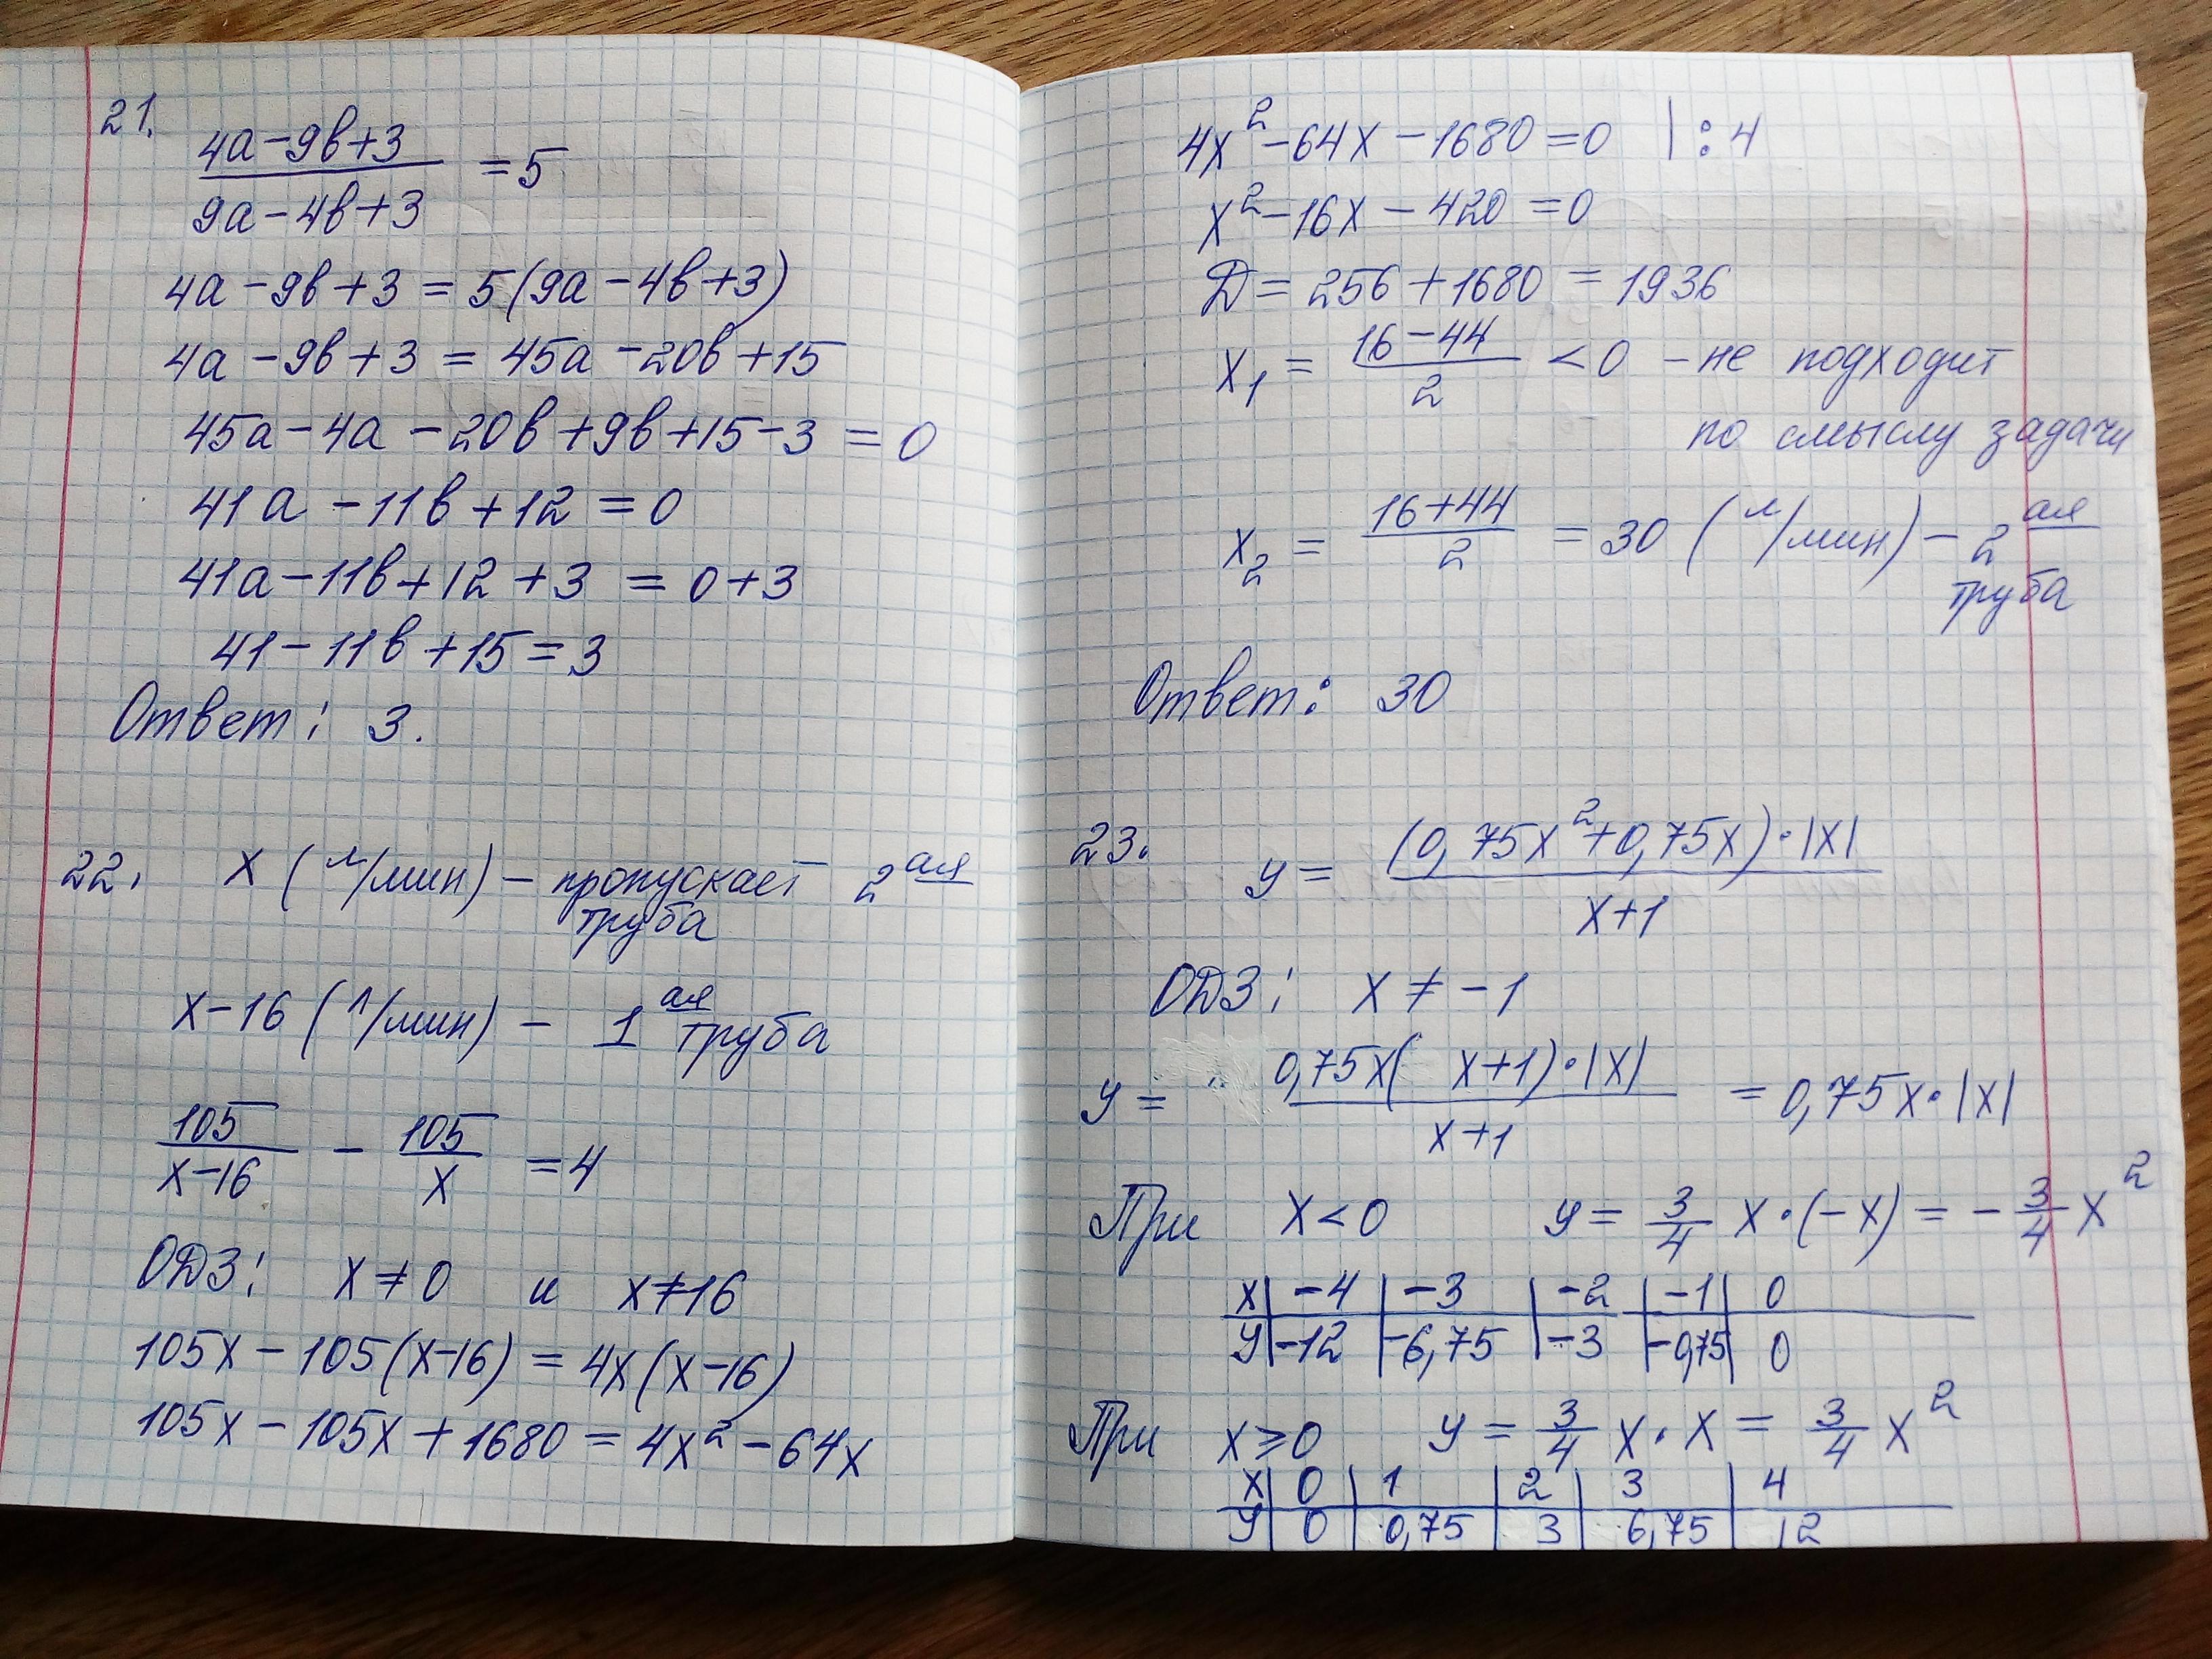 21.
4а-9в+3
9а-4в+3
=5
4а-9в+3=5(9а-4в+3)
4а-9в+3=45а-20в+15
45а-4а-20в+9в+15-3=0
41а-11в+12=0
41а-11в+12+3=0+3
41-11в+15=3
Ответ: 3.
22. х (л/мин) - пропускает 2ая
труба
х-16 (л/мин) - 1ая труба
105/(х-16) - 105/х =4
ОДЗ: х≠0 и х≠16
105х-105(х-16)=4х(х-16)
105х-105х+1680=4х²-64х
4х²-64х-1680=0 |:4
х²-16х-420=0
Д=256+1680=1936
х₁=(16-44)/2 <0 - не подходит
по смыслу задачи
х₂=(16+44)/2=30 (л/мин) - 2ая
труба
Ответ: 30
23. у=((0,75х²+0,75х)·|х|)/(х+1)
ОДЗ: х≠-1
у=(0,75х(х+1)·|х|)/(х+1)=0,75х·|х|
При х<0 у=3/4 х·(-х)=-3/4 х²
х|-4|-3|-2|-1|0
у|-12|-6,75|-3|-0,75|0
При х≥0 у=3/4 х·х=3/4 х²
х|0|1|2|3|4
у|0|0,75|3|6,75|12